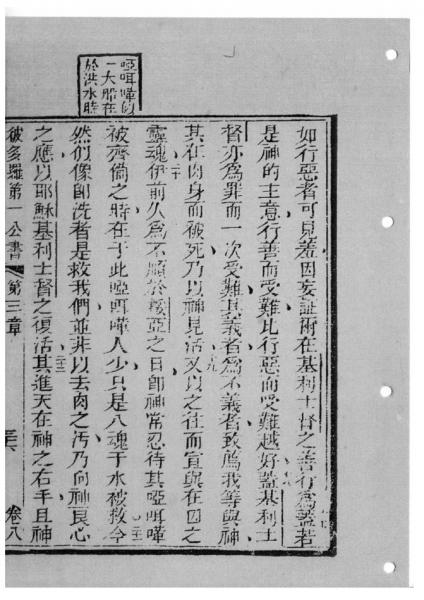 啞咡嘩似
一大船在
於洪水時
如行惡者可見羞因妄証術在基利士督之善行為蓋若
是神的主意行善而受難比行惡而受難越好蓋基利士
督亦為罪而一次受難其義者為不義者致薦我等與神
其在肉身而被死乃以神見活十九又以之往而宣與在囚之
靈魂二十伊前久為不順於挼亞之日卽神常忍待其啞咡嘩
被齊備之時在于此啞咡嘩人少只是八魂于水被救今
然們像卽洗者是救我們並非以去肉之汚乃向神良心
之應以耶穌基利士督之復活其進天在神之右手且神
彼多羅第一公書 第三章 卷八